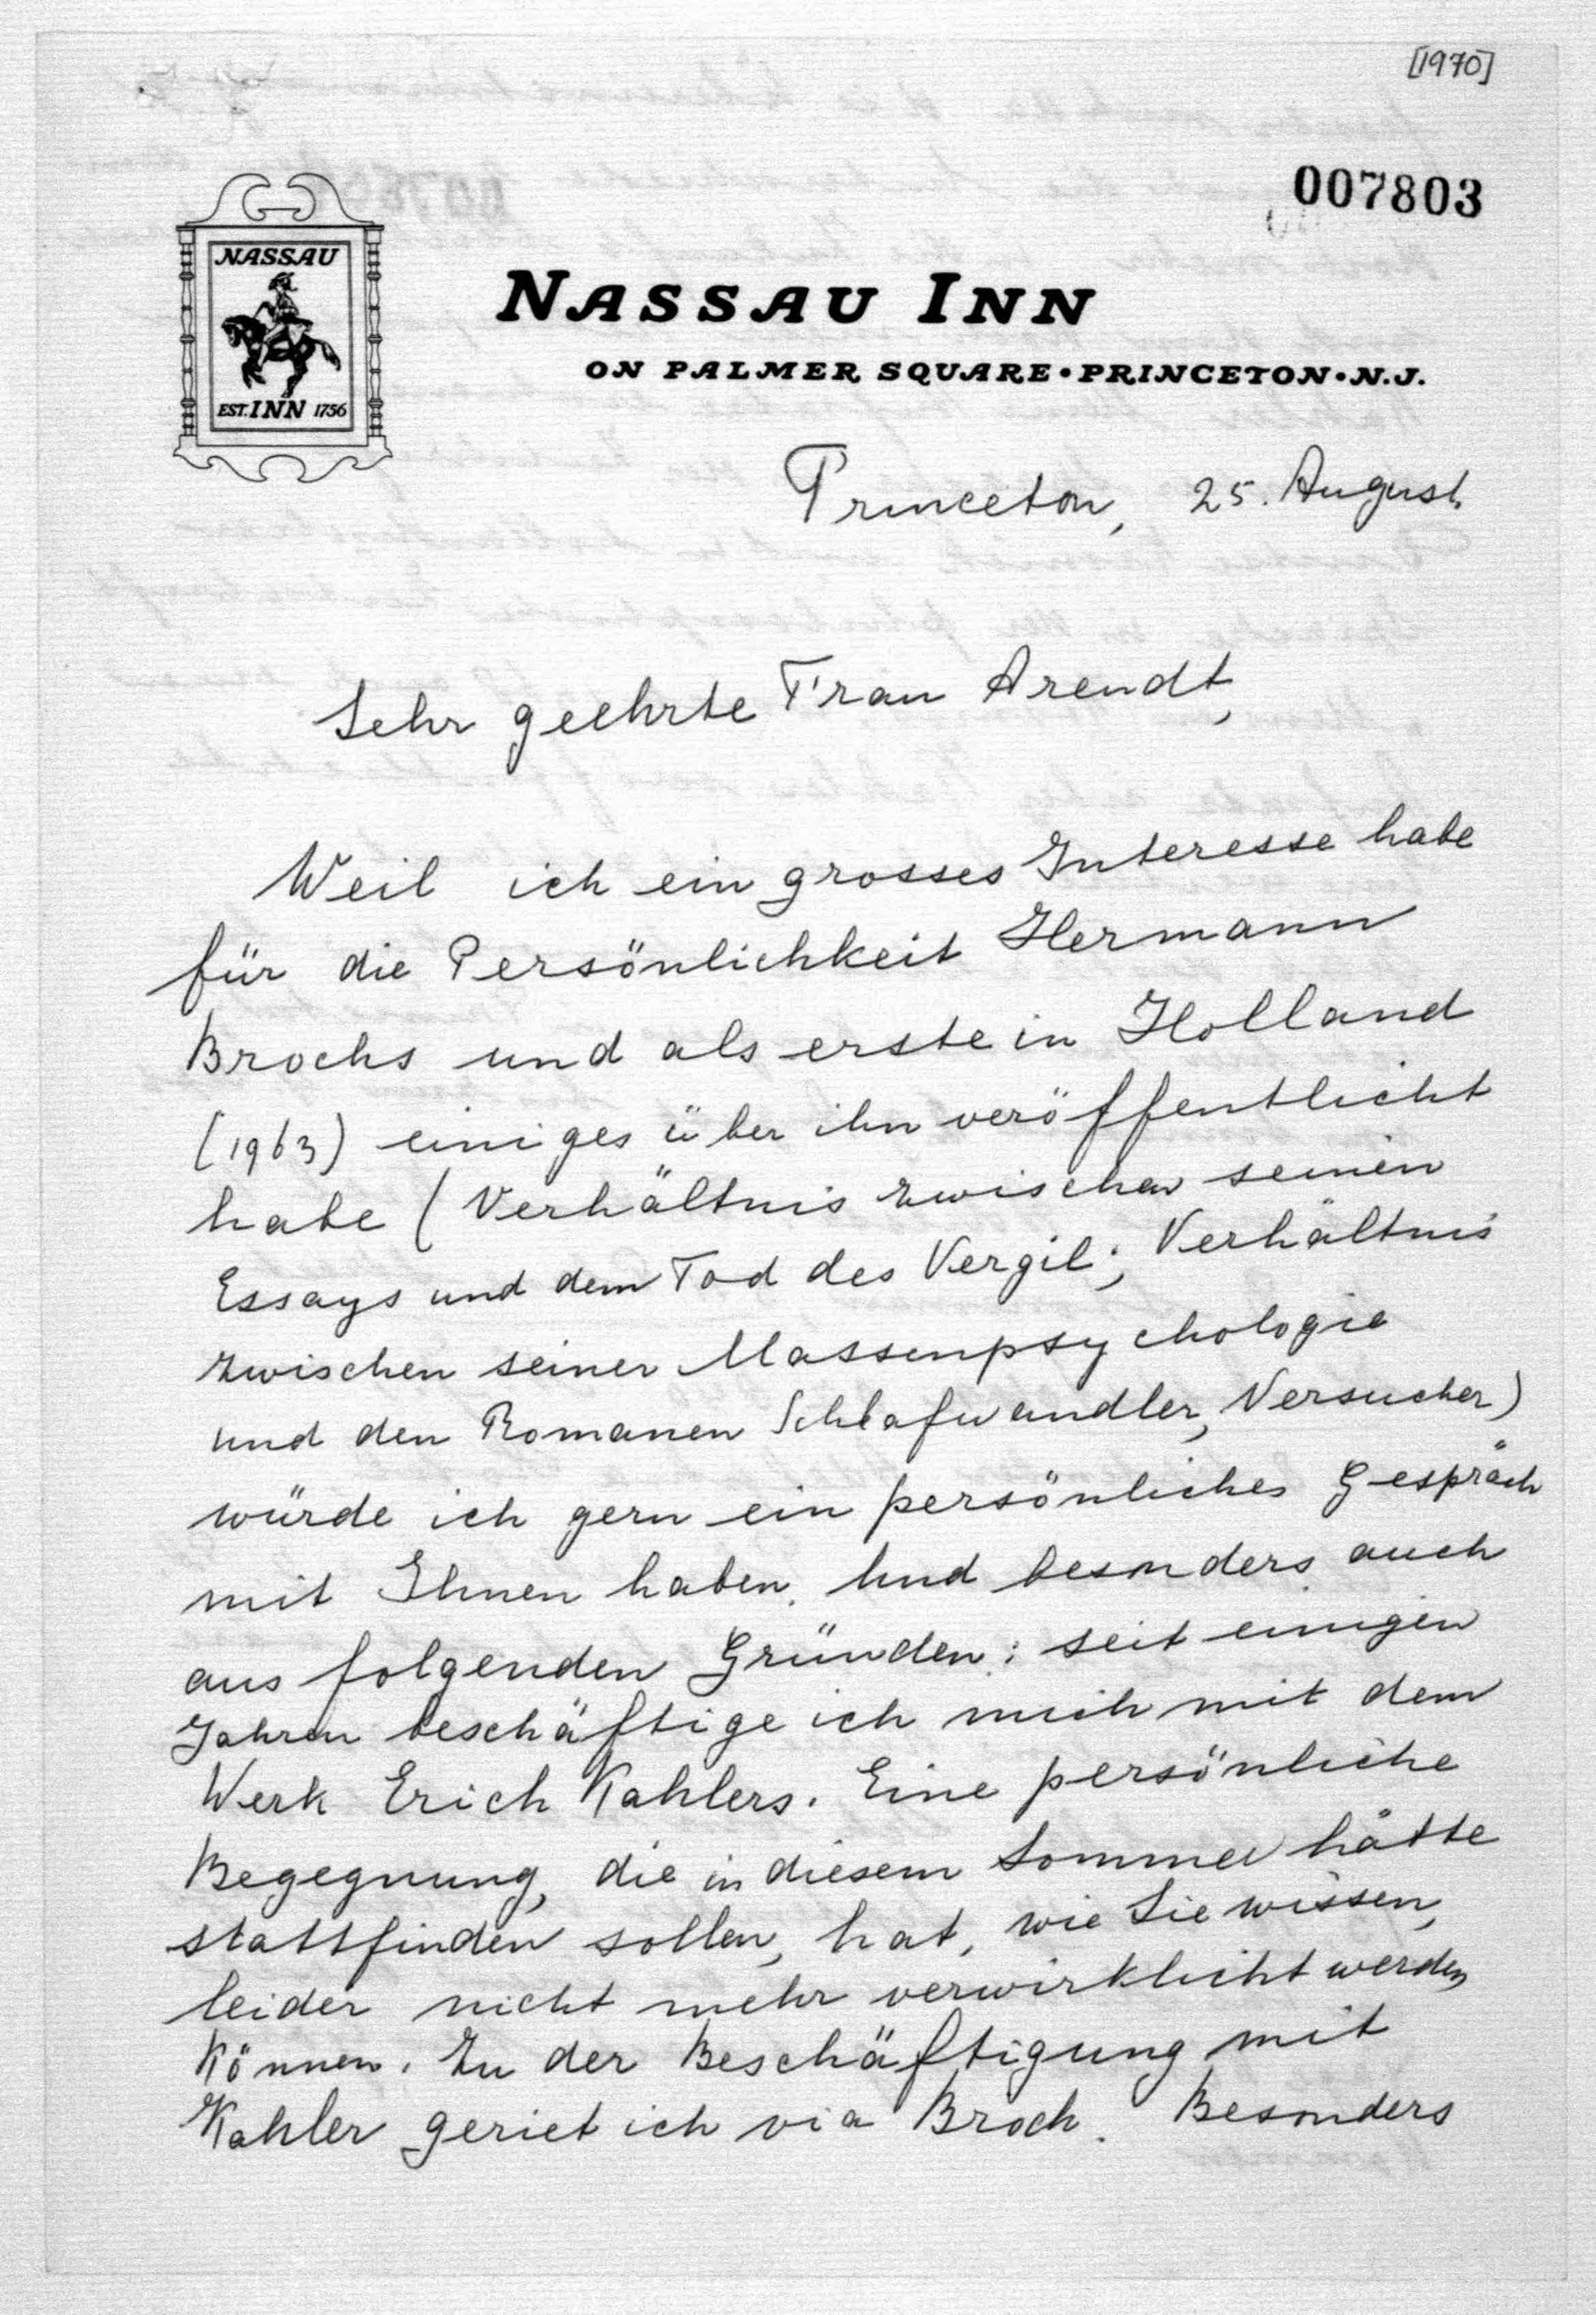 [1970]
007803
NASSAU
EST. INN 1756
NASSAU INN
ON PALMER SQUARE • PRINCETON • N.J.
Princeton, 25. August.
Sehr geehrte Frau Arendt,
Weil ich ein grosses Interesse habe
für die Persönlichkeit Hermann
Brochs und als erste in Holland
(1963) einiges über ihn veröffentlicht
habe (Verhältnis zwischen seinen
Essays und dem Tod des Vergil; Verhältnis
zwischen seiner Massenpsychologie
und den Romanen Schlafwandler, Versucher)
würde ich gern ein persönliches Gespräch
mit Ihnen haben. Und besonders auch
aus folgenden Gründen: seit einigen
Jahren beschäftige ich mich mit dem
Werk Erich Kahlers. Eine persönliche
Begegnung, die in diesem Sommer hätte
stattfinden sollen, hat, wie Sie wissen,
leider nicht mehr verwirklicht werden
können. Zu der Beschäftigung mit
Kahler geriet ich via Broch. Besonders